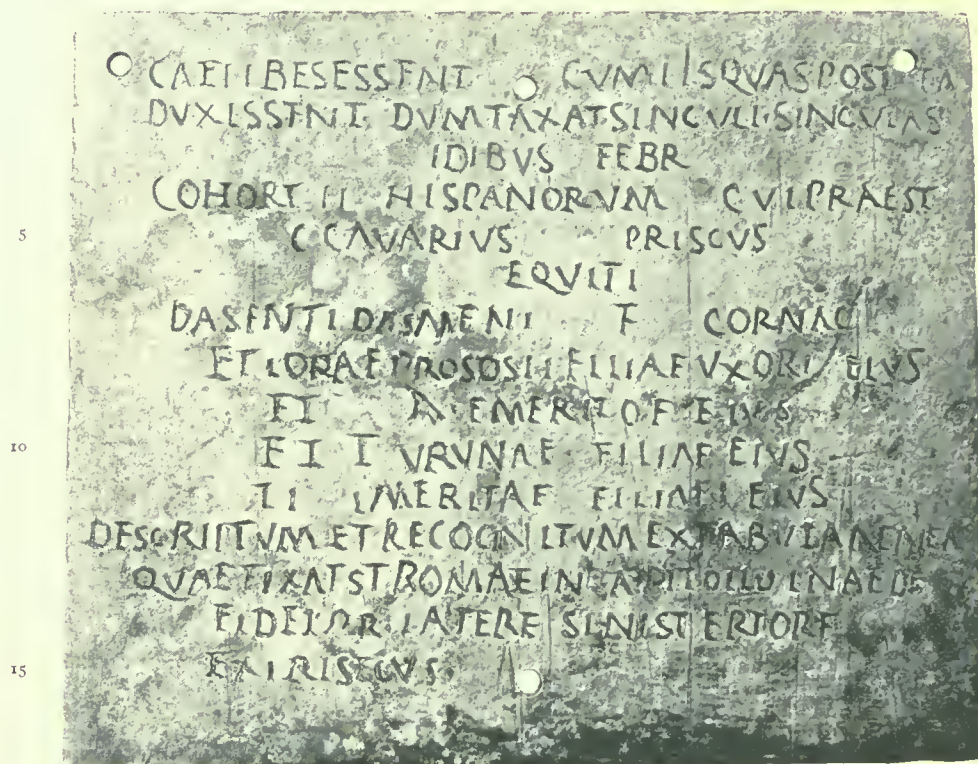 CAELIBES ESSENT CUM IIS QUAS POSTEA
DVXISSENT DVMTAXAT SINGVLI SINGVLAS
IDIBVS FEBR
COHORT II HISPANORVM CVI PRAEST
5 C CAVARIVS PRISCVS
EQVITI
DASENTI DASMENI F CORNAC
ET IORAE PROSOSII FILIAE VXORI EIVS
ET EMERITO F EIVS
10 ET TVRVNAE FILIAE EIVS
ET EMERITAE FILIAE EIVS
DESCRIPTVM ET RECOGNITVM EX TABVLA AENEA
QVAE FIXA EST ROMAE IN CAPITOLIO IN AEDE
FIDEI P R LATERE SINISTERIORE
15 EXTRISECVS